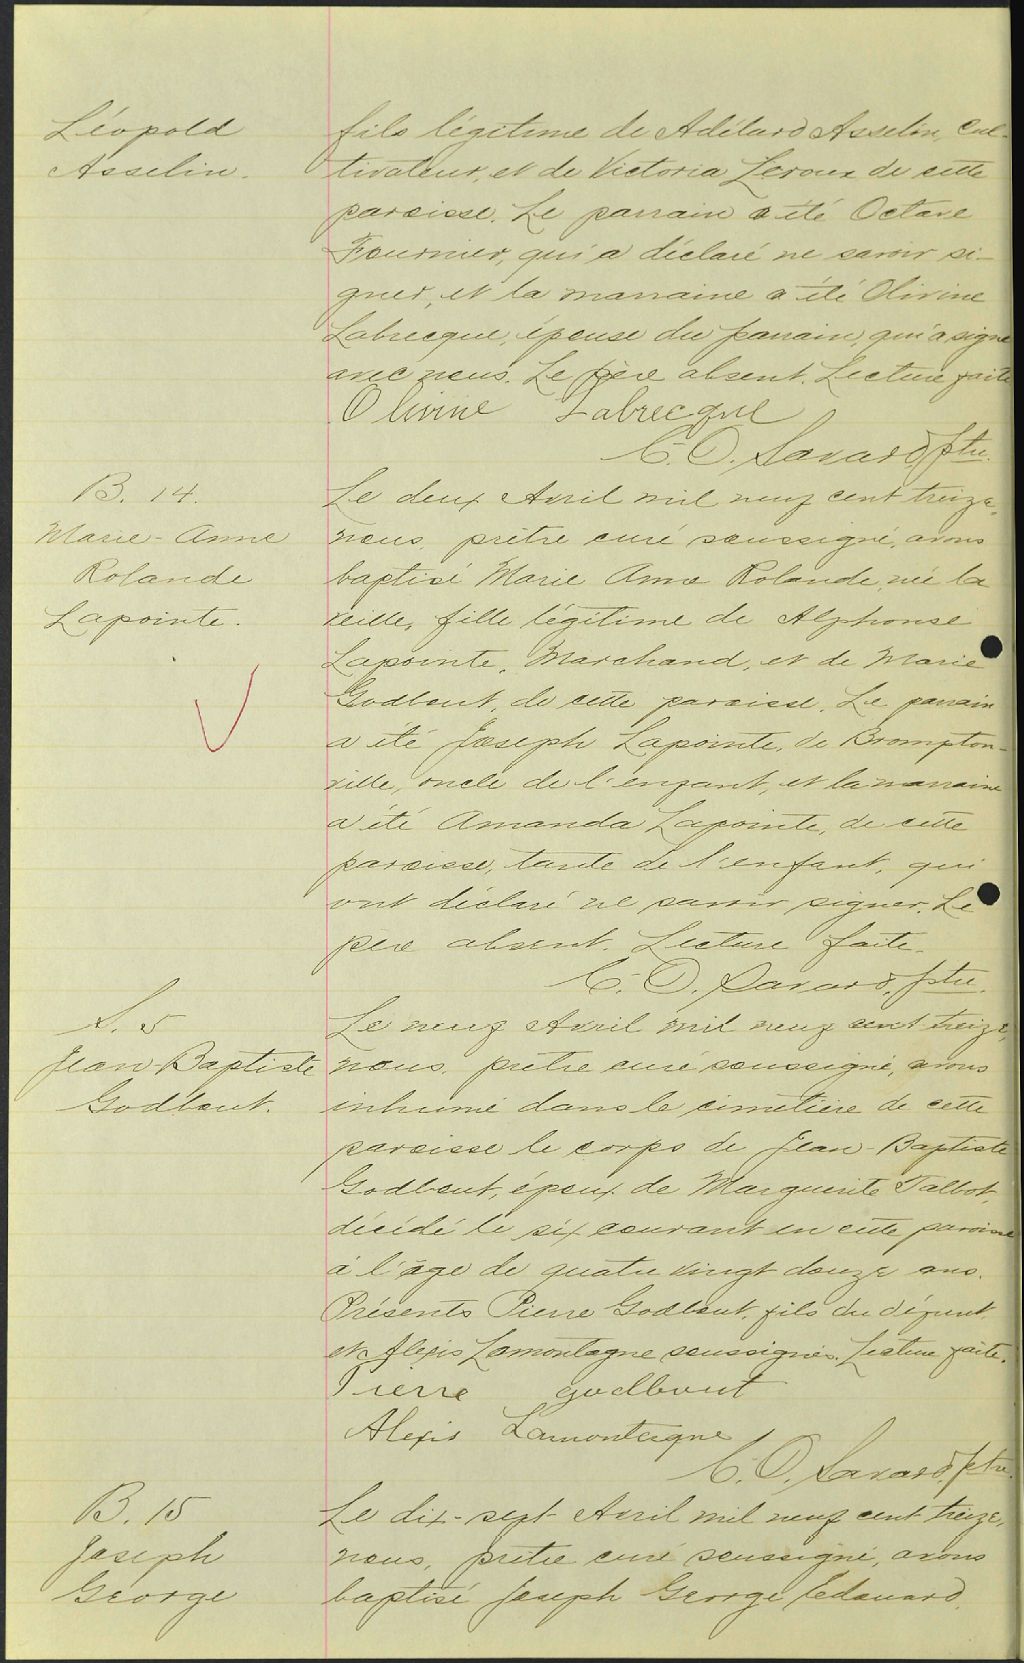 Léopold
Asselin.
fils légitime de Adélard Asselin, cul-
tivateur, et de Victoria Leroux de cette
paroisse. Le parrain a été Octave
Fournier, qui a déclaré ne savoir si-
gner, et la marraine a été Olivine
Labrecque, épouse du parrain, qui a signé
avec nous. Le père absent. Lecture faite
Olivine Labrecque
C. O. Savard, ptre.
B. 14.
Marie-Anne
Rolande
Lapointe.
Le deux Avril mil neuf cent treize,
nous, prêtre curé soussigné, avons
baptisé Marie Anne Rolande, née la
veille, fille légitime de Alphonse
Lapointe, Marchand, et de Marie
Godbout, de cette paroisse. Le parrain
a été Joseph Lapointe, de Brompton-
ville, oncle de l'enfant, et la marraine
a été Amanda Lapointe, de cette
paroisse, tante de l'enfant, qui
ont déclaré ne savoir signer. Le
père absent. Lecture faite.
C. O. Savard, ptre.
S. 5
Jean Baptiste
Godbout.
Le neuf Avril mil neuf cent treize,
nous, prêtre curé soussigné, avons
inhumé dans le cimetière de cette
paroisse le corps de Jean-Baptiste
Godbout, époux de Marguerite Talbot,
décédé le six courant en cette paroisse
à l'âge de quatre vingt douze ans.
Présents Pierre Godbout, fils du défunt,
et Alexis Lamontagne soussignés. Lecture faite.
Pierre godbout
Alexis Lamontagne
C. O. Savard, ptre.
B. 15
Joseph
George
Le dix-sept Avril mil neuf cent treize,
nous, prêtre curé soussigné, avons
baptisé Joseph George Edouard,